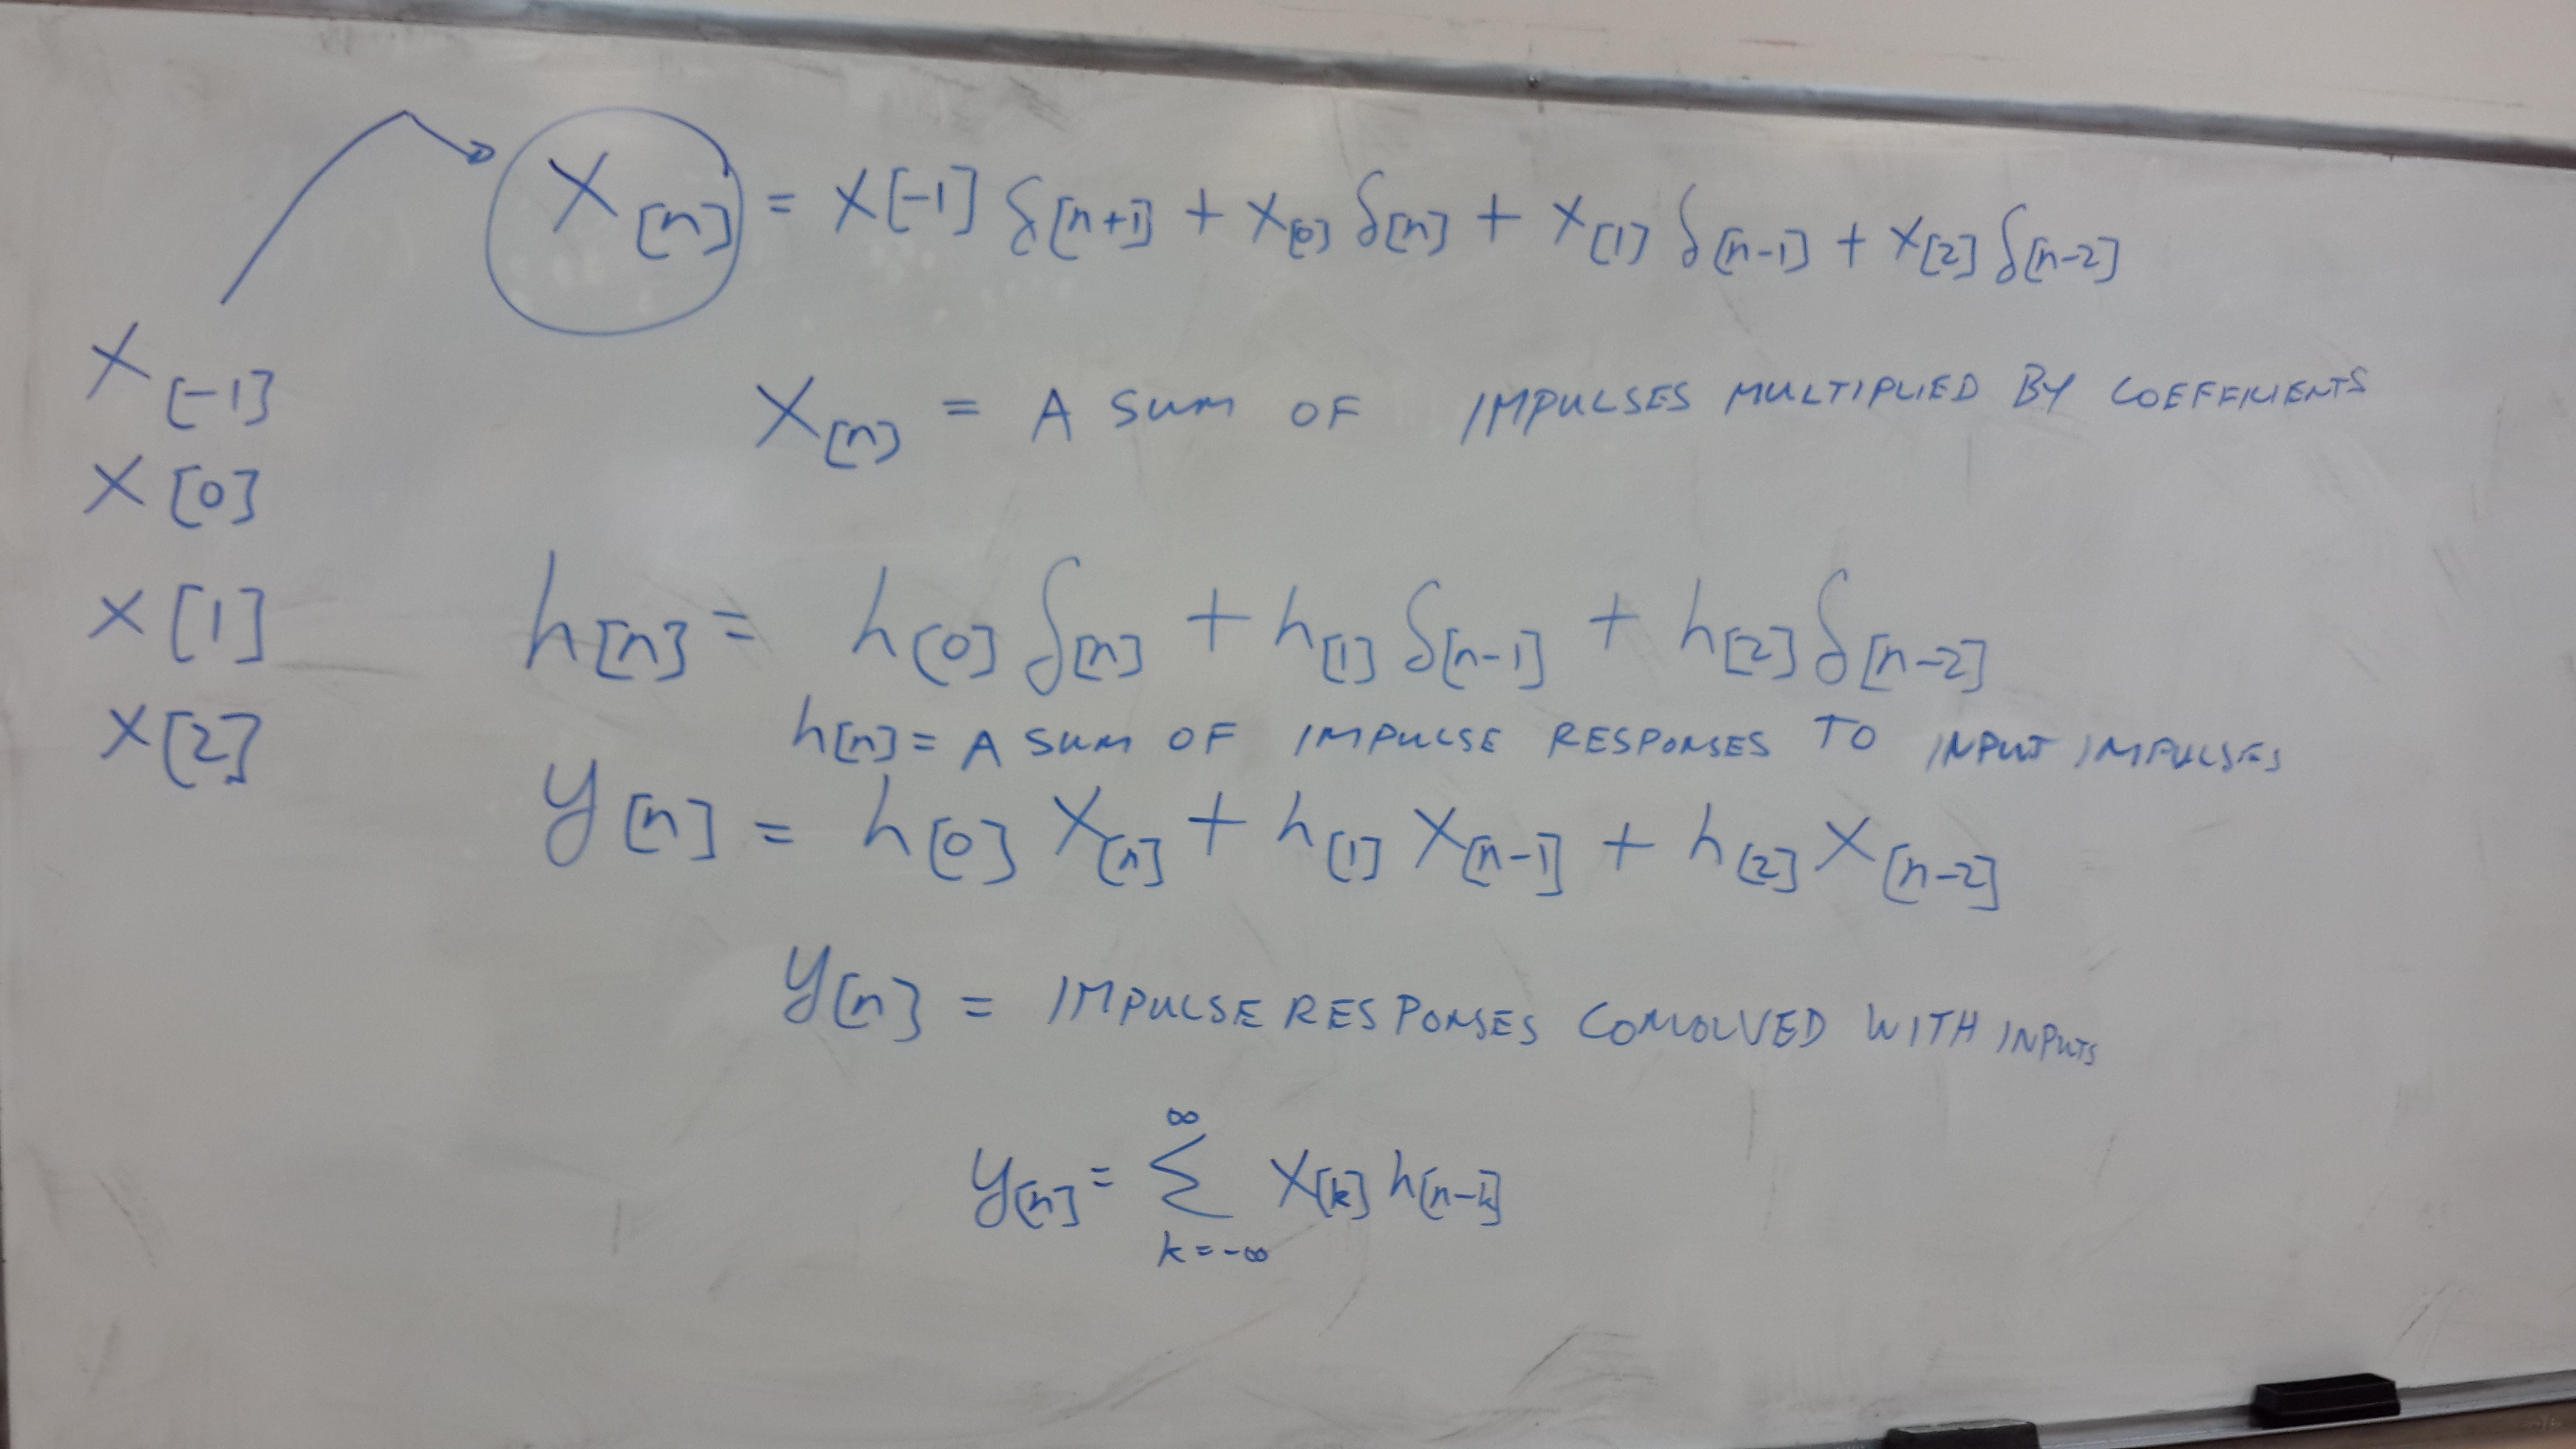 x[n] = x[-1] δ[n+1] + x[0] δ[n] + x[1] δ[n-1] + x[2] δ[n-2]
x[-1]
x[n] = A SUM OF IMPULSES MULTIPLIED BY COEFFICIENTS
x[0]
h[n] = h[0] δ[n] + h[1] δ[n-1] + h[2] δ[n-2]
x[1]
h[n] = A SUM OF IMPULSE RESPONSES TO INPUT IMPULSES
x[2]
y[n] = h[0] x[n] + h[1] x[n-1] + h[2] x[n-2]
y[n] = IMPULSE RESPONSES CONVOLVED WITH INPUTS
∞
y[n] = Σ x[k] h[n-k]
k=-∞